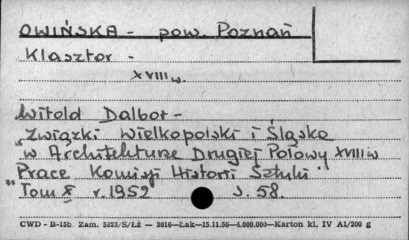 OWIŃSKA - pow. Poznań
Klasztor -
XVIII w.
Witold Dalbor -
"Związki Wielkopolski i Śląska
w Architekturze Drugiej Połowy XVIII w
Prace Komisji Historii Sztuki"
Tom X r. 1952 s. 58.
CWD - B-15b. Zam. 5823/S/Łź — 3016—Łak—15.11.56—4.000.000—Karton kl. IV A1/200 g